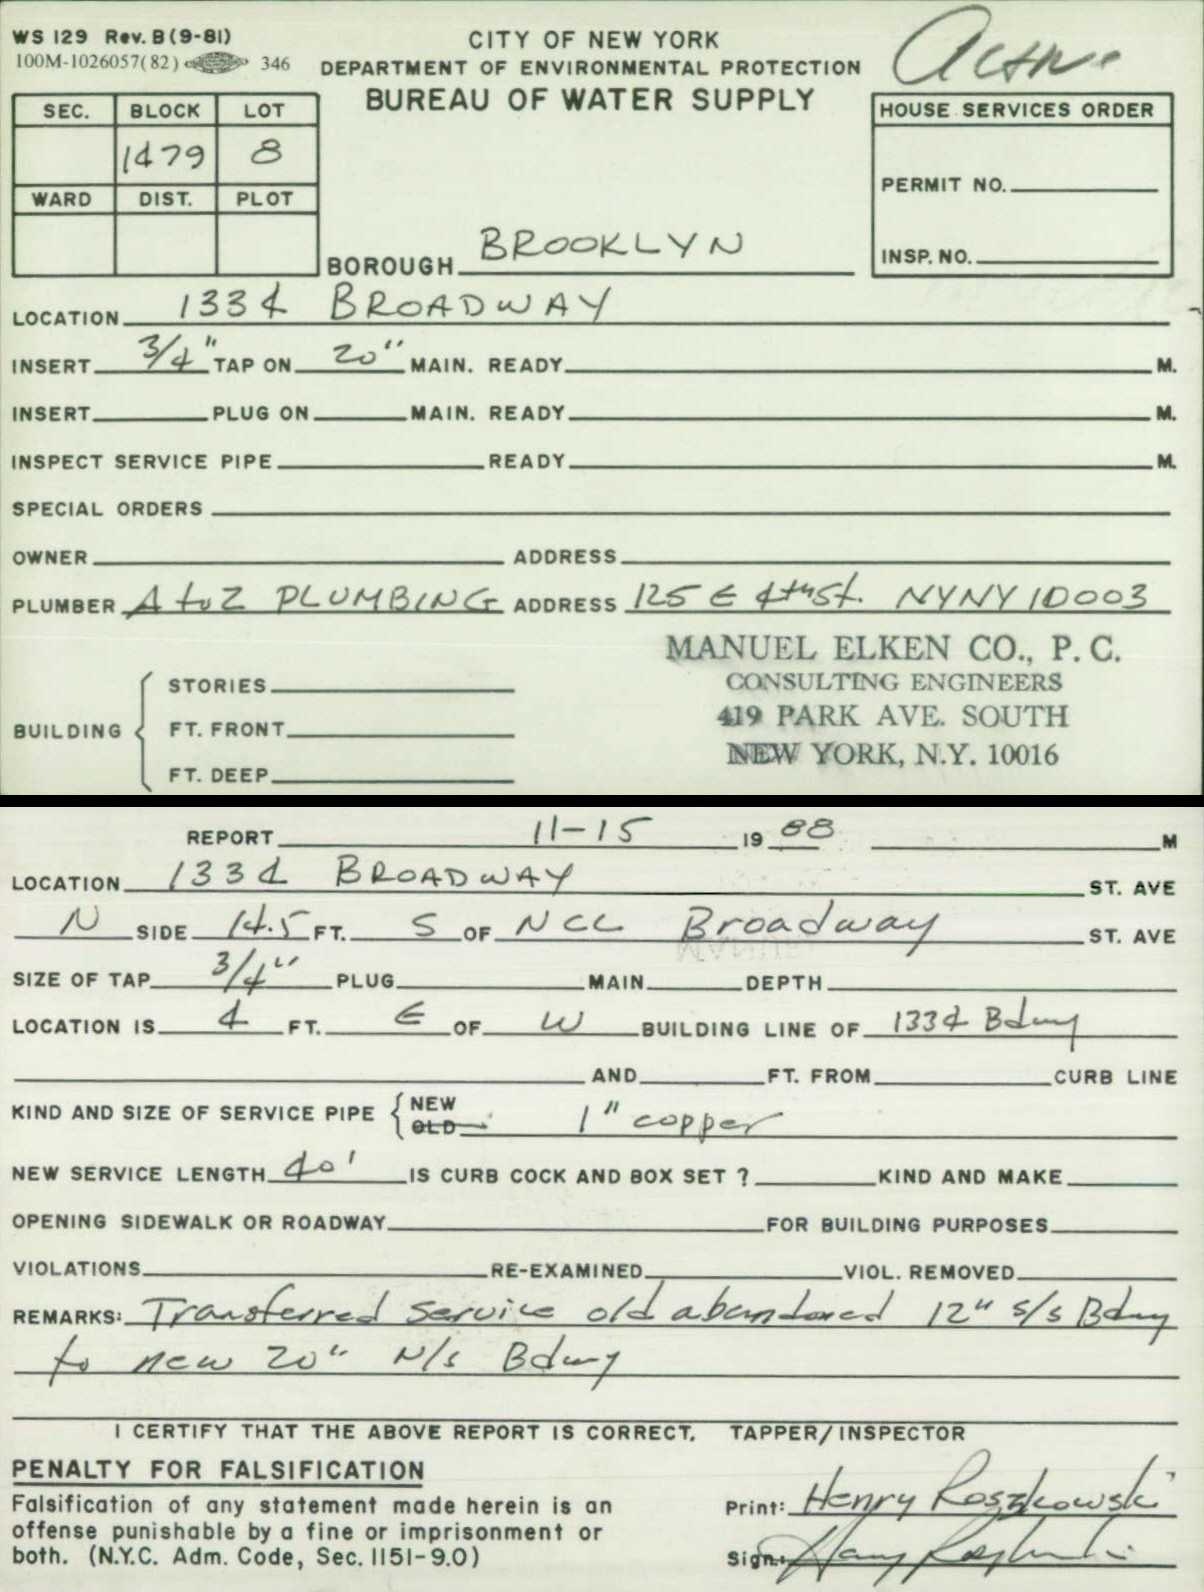 WS 129 Rev. B (9-81)
100M-1026057(82) 346
CITY OF NEW YORK
DEPARTMENT OF ENVIRONMENTAL PROTECTION
BUREAU OF WATER SUPPLY
Active
SEC. BLOCK LOT
1479 8
WARD DIST. PLOT
HOUSE SERVICES ORDER
PERMIT NO.
INSP. NO.
BOROUGH BROOKLYN
LOCATION 1334 BROADWAY
INSERT 3/4" TAP ON 20" MAIN. READY M.
INSERT PLUG ON MAIN. READY M.
INSPECT SERVICE PIPE READY M.
SPECIAL ORDERS
OWNER ADDRESS
PLUMBER A to Z PLUMBING ADDRESS 125 E 4th St. NYNY 10003
MANUEL ELKEN CO., P.C.
CONSULTING ENGINEERS
419 PARK AVE. SOUTH
NEW YORK, N.Y. 10016
BUILDING
STORIES
FT. FRONT
FT. DEEP
REPORT 11-15 19 88 M
LOCATION 1334 BROADWAY ST. AVE
N SIDE 14.5 FT. S OF NCL Broadway ST. AVE
SIZE OF TAP 3/4" PLUG MAIN DEPTH
LOCATION IS 4 FT. E OF W BUILDING LINE OF 1334 Bdwy
AND FT. FROM CURB LINE
KIND AND SIZE OF SERVICE PIPE { NEW
OLD 1" copper
NEW SERVICE LENGTH 40' IS CURB COCK AND BOX SET ? KIND AND MAKE
OPENING SIDEWALK OR ROADWAY FOR BUILDING PURPOSES
VIOLATIONS RE-EXAMINED VIOL. REMOVED
REMARKS: Transferred service old abandoned 12" s/s Bdwy
to new 20" N/s Bdwy
I CERTIFY THAT THE ABOVE REPORT IS CORRECT. TAPPER/INSPECTOR
PENALTY FOR FALSIFICATION
Falsification of any statement made herein is an
offense punishable by a fine or imprisonment or
both. (N.Y.C. Adm. Code, Sec. 1151-9.0)
Print: Henry Roszkowski
Sign.: Henry Roszkowski